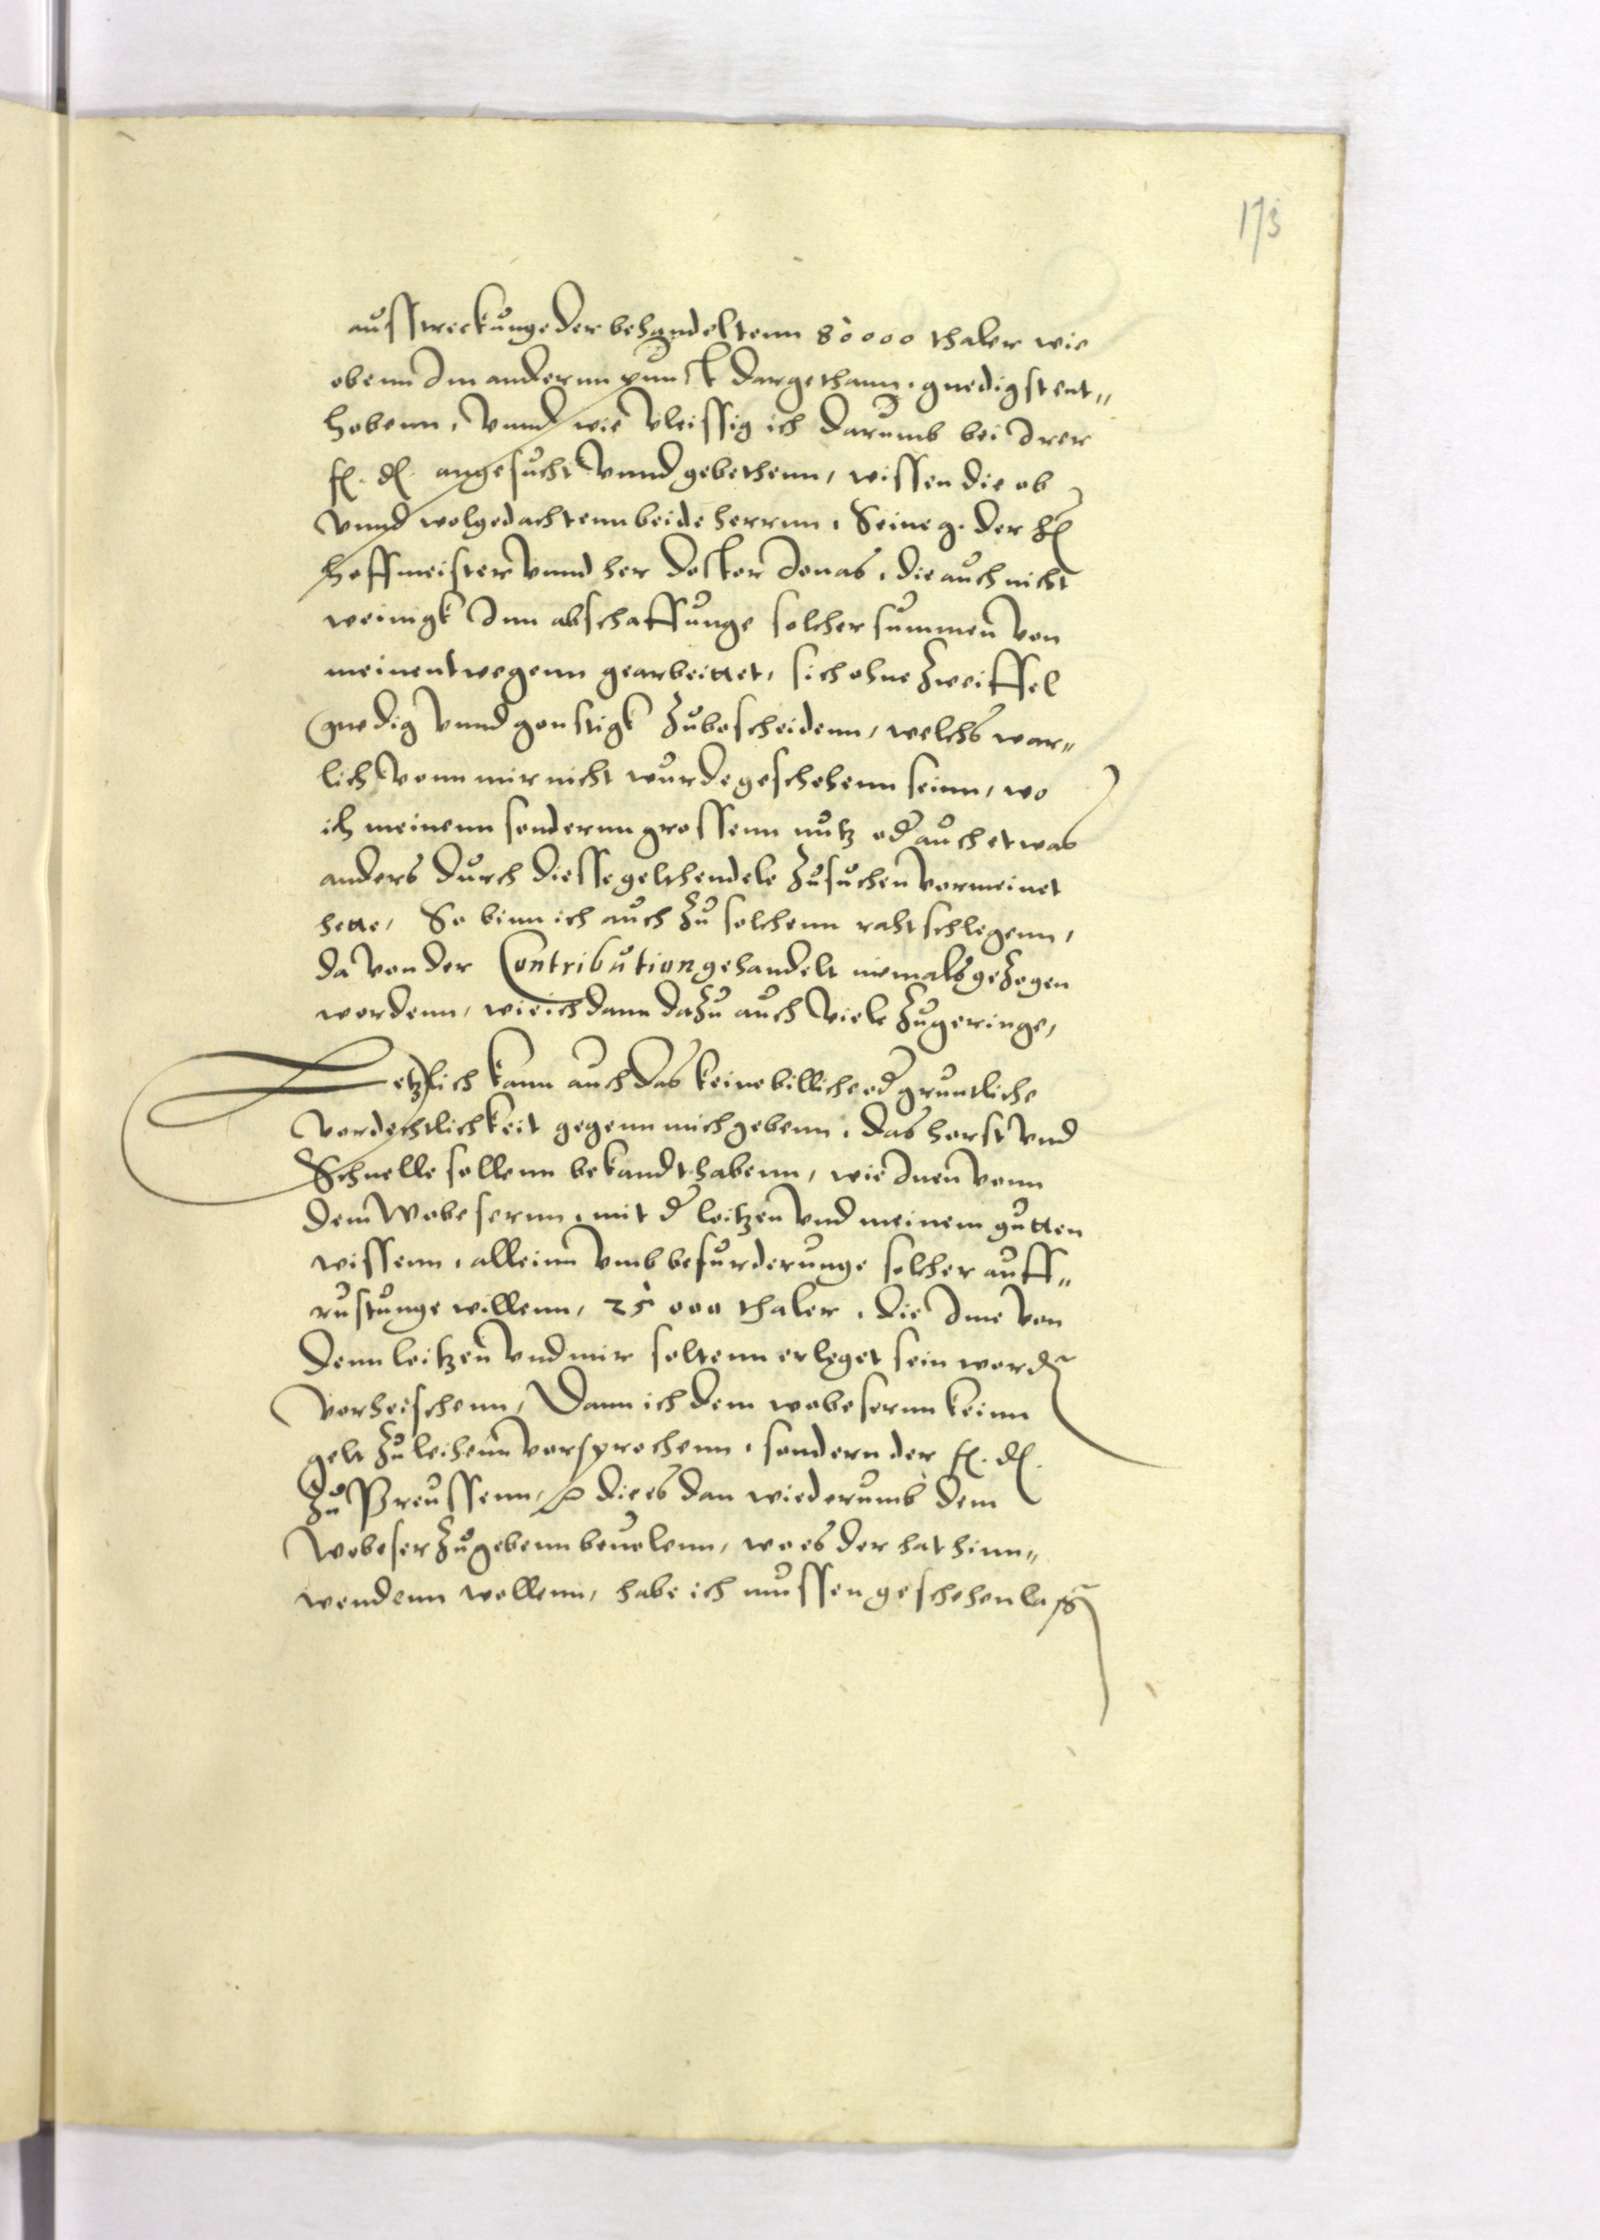 173
ausstreckunge der behandeltenn 80000 thaler wie
obenn Im anderun punct dargethann, gnedigst ent„
hobenn, Vnnd wie vleissig ich darumb bei Irer
f. d. angesucht Vnnd gebethenn, wissen die ob
Vnnd wolgedachtenn beide herrnn, Seine g. der h
hoffmeister Vnnd her doctor Jonas, die auch nicht
weinigk Inn abschaffunge solcher summen Von
meinentwegenn gearbeittet, sich ohne Zweiffel
gnedig Vnnd gonstigk Zubescheidenn, welchs war„
lich Vonn mir nicht wurde geschehenn seinn, wo
ich meinenn sondernn grossenn nutz oder auch etwas
anders durch diesse gelthendele Zusuchen Vormeinet
hette, So binn ich auch Zu solchenn rahtschlegenn,
da von der Contribution gehandelt niemals geZogen
wordenn, wie ich dann daZu auch Viele Zugeringe,
Letzlich kann auch das keine billiche oder gruntliche
Vordechtlichkeit gegenn mich gebenn, das horst Vnd
Schnelle sollenn bekandt habenn, wie Inen Vonn
dem Wobesernn, mit der loitzen Vnd meinem gutten
wissenn, alleinn Vmb befurderunge solcher auff„
rustunge willenn, 25000 thaler, die Ime Von
denn loitzen Vnd mir soltenn erleget sein worden
Vorheischenn, Dann ich dem wobesernn keinn
gelt Zu leihenn Vorsprochenn, sondern der f. d.
Zu Preussenn, die es dan wiederumb dem
Wobeser Zugebenn beuolenn, wo es der hat hinn„
wendenn wollenn, habe ich mussen geschehen lassen